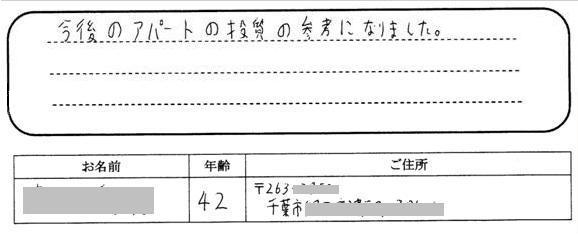 今後のアパートの投資の参考になりました。
お名前 年齢 ご住所
42 〒263-
千葉市